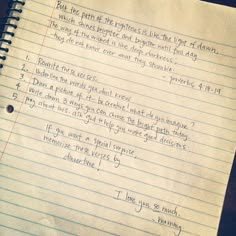 But the path of the righteous is like the light of dawn,
which shines brighter and brighter until full day.
The way of the wicked is like deep darkness;
they do not know over what they stumble.
- proverbs 4:18-19
1. Rewrite these verses.
2. Underline the words you don't know.
3. Draw a picture of it - be creative! what do you imagine?
4. Write down 3 ways you can choose the bright path today.
5. pray about this. ask God to help you make good decisions
If you want a special surprise,
memorize these verses by
dinner time!
I love you so much,
- mommy